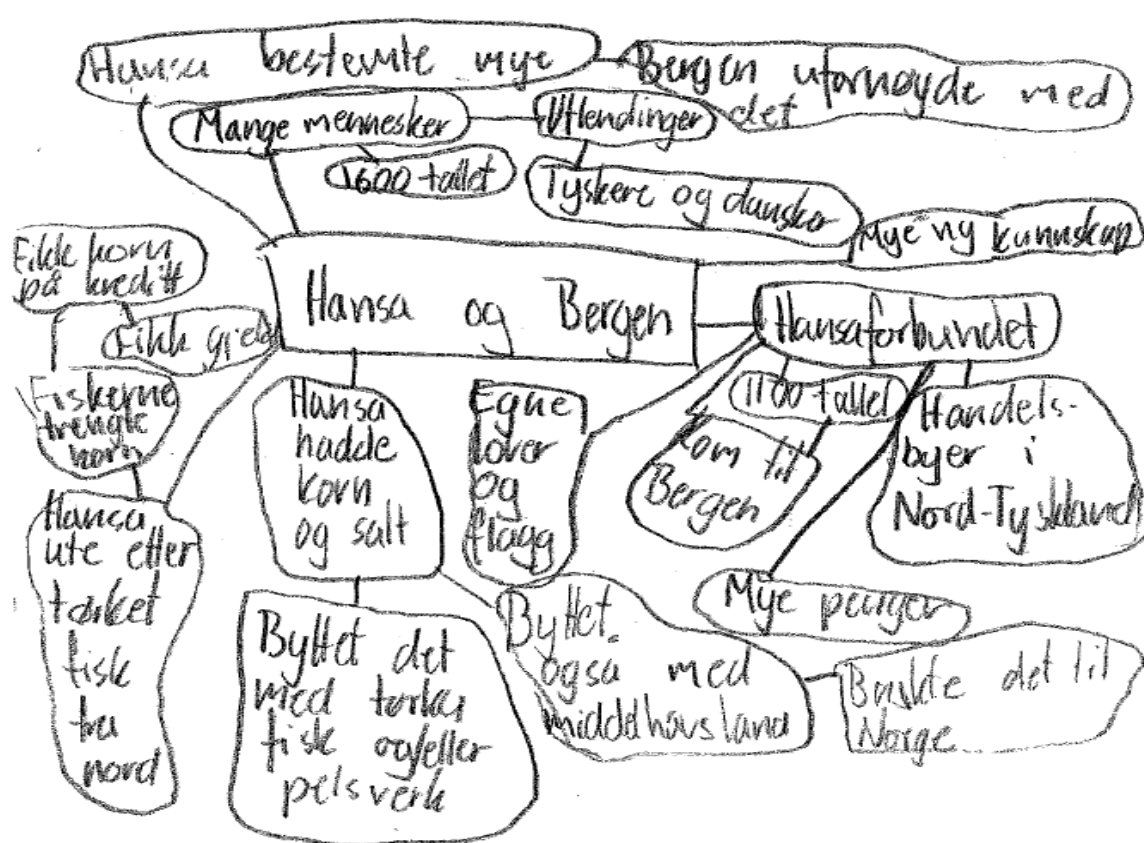 Hansa bestemte mye
Bergen utfornøyde med
det
Mange mennesker
Utlendinger
1600 tallet
Tyskere og dansker
Mye ny kunnskap
Fikk korn
på kreditt
Fikk gjeld
Hansa og Bergen
Hansaforbundet
Fiskerne
trengte
korn
Hansa
hadde
korn
og salt
Egne
lover
og
flagg
1100 tallet
kom til
Bergen
Handels-
byer i
Nord-Tyskland
Hansa
ute etter
tørket
fisk
fra
nord
Byttet det
med tørka
fisk og/eller
pelsverk
Byttet
også med
middelhavsland
Mye penger
Brukte det til
Norge